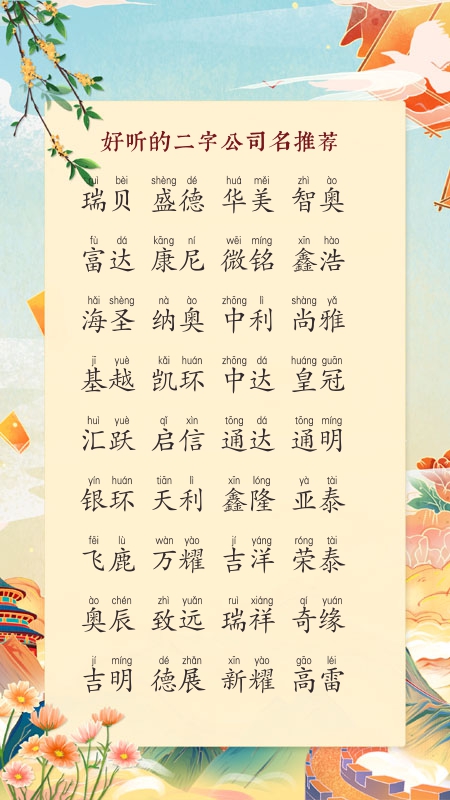 好听的二字公司名推荐
ruì bèi shèng dé huá měi zhì ào
瑞贝 盛德 华美 智奥
fù dá kāng ní wēi míng xīn hào
富达 康尼 微铭 鑫浩
hǎi shèng nà ào zhōng lì shàng yǎ
海圣 纳奥 中利 尚雅
jī yuè kǎi huán zhōng dá huáng guān
基越 凯环 中达 皇冠
huì yuè qǐ xìn tōng dá tōng míng
汇跃 启信 通达 通明
yín huán tiān lì xīn lóng yà tài
银环 天利 鑫隆 亚泰
fēi lù wàn yào jí yáng róng tài
飞鹿 万耀 吉洋 荣泰
ào chén zhì yuǎn ruì xiáng qí yuán
奥辰 致远 瑞祥 奇缘
jí míng dé zhǎn xīn yào gāo léi
吉明 德展 新耀 高雷